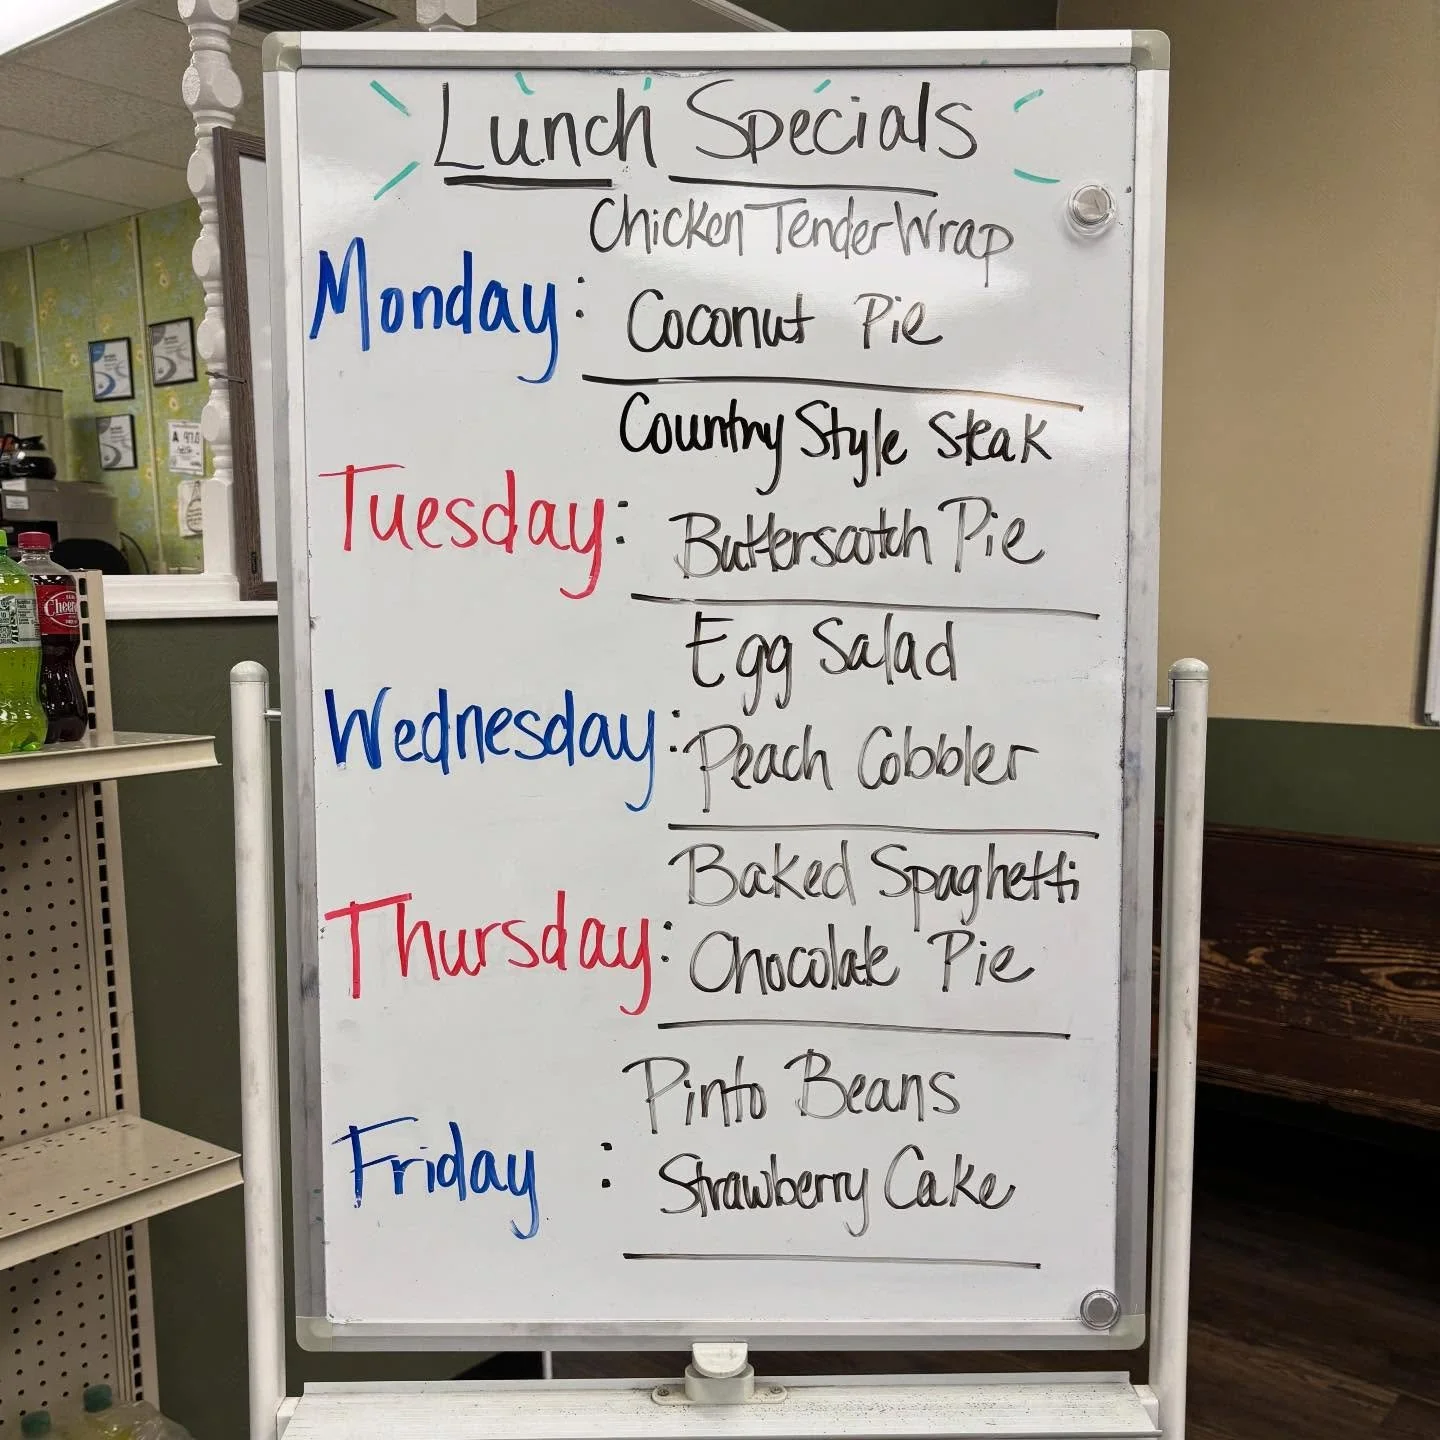 Lunch Specials
Chicken Tender Wrap
Monday:
Coconut Pie
Country Style Steak
Tuesday:
Butterscotch Pie
Egg Salad
Wednesday:
Peach Cobbler
Baked Spaghetti
Thursday:
Chocolate Pie
Pinto Beans
Friday :
Strawberry Cake
A 97.0
Cheer